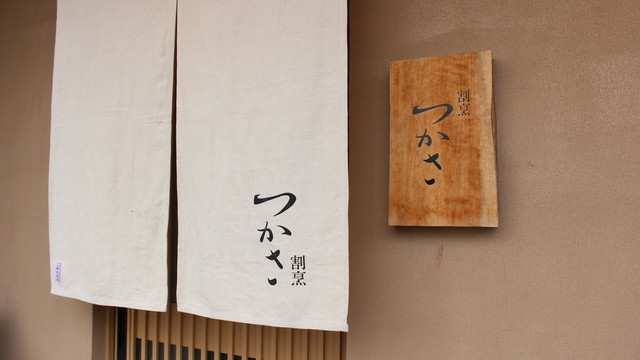 割烹
つかさ
つかさ
割烹